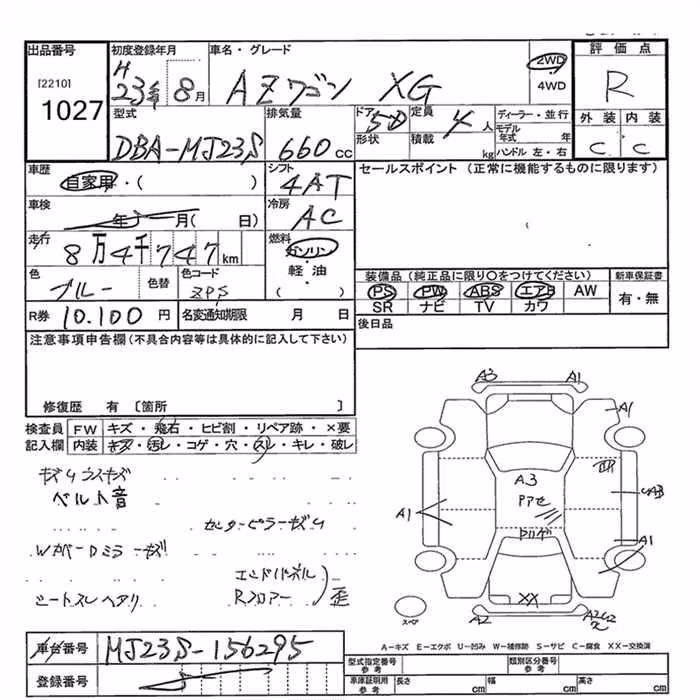 出品番号
[2210]
1027
初度登録年月
H
23年 8月
車名・グレード
AZワゴン XG
2WD
4WD
評価点
R
外装 内装
C C
型式
DBA-MJ23S
排気量
660 cc
ドア 5D
形状
定員
4人
積載
kg
ディーラー・並行
モデル年式 年
ハンドル 左・右
車歴
自家用・( )
シフト
4AT
セールスポイント (正常に機能するものに限ります)
車検
年 月( 日)
冷房
AC
走行
8万4千747km
燃料
ガソリン
軽・油
( )
色
ブルー
色替
色コード
ZPS
装備品 (純正品に限り○をつけてください)
新車保証書
PS PW ABS エアB AW
SR ナビ TV カワ
有・無
R券 10.100円
名変通知期限 月 日
後日品
注意事項申告欄(不具合内容等は具体的に記入して下さい)
修復歴 有 〔箇所 〕
検査員
記入欄
FW キズ・飛石・ヒビ割・リペア跡・×要
内装 キズ・汚レ・コゲ・穴・スレ・キレ・破レ
ベルト音
センターピラーキズU
WカバーDミラーキズ
エンドパネル
Rフロアー
歪
シートスレヘタリ
A3 A1
A1
A3
Pアセ
A1
A1
XX
スペア
A2
A-キズ E-エクボ U-凹み W-補修跡 S-サビ C-腐食 XX-交換済
車台番号 MJ23S-156295
登録番号
型式指定番号
参考
類別区分番号
参考
車庫証明用
参考
長さ cm
幅 cm
高さ cm